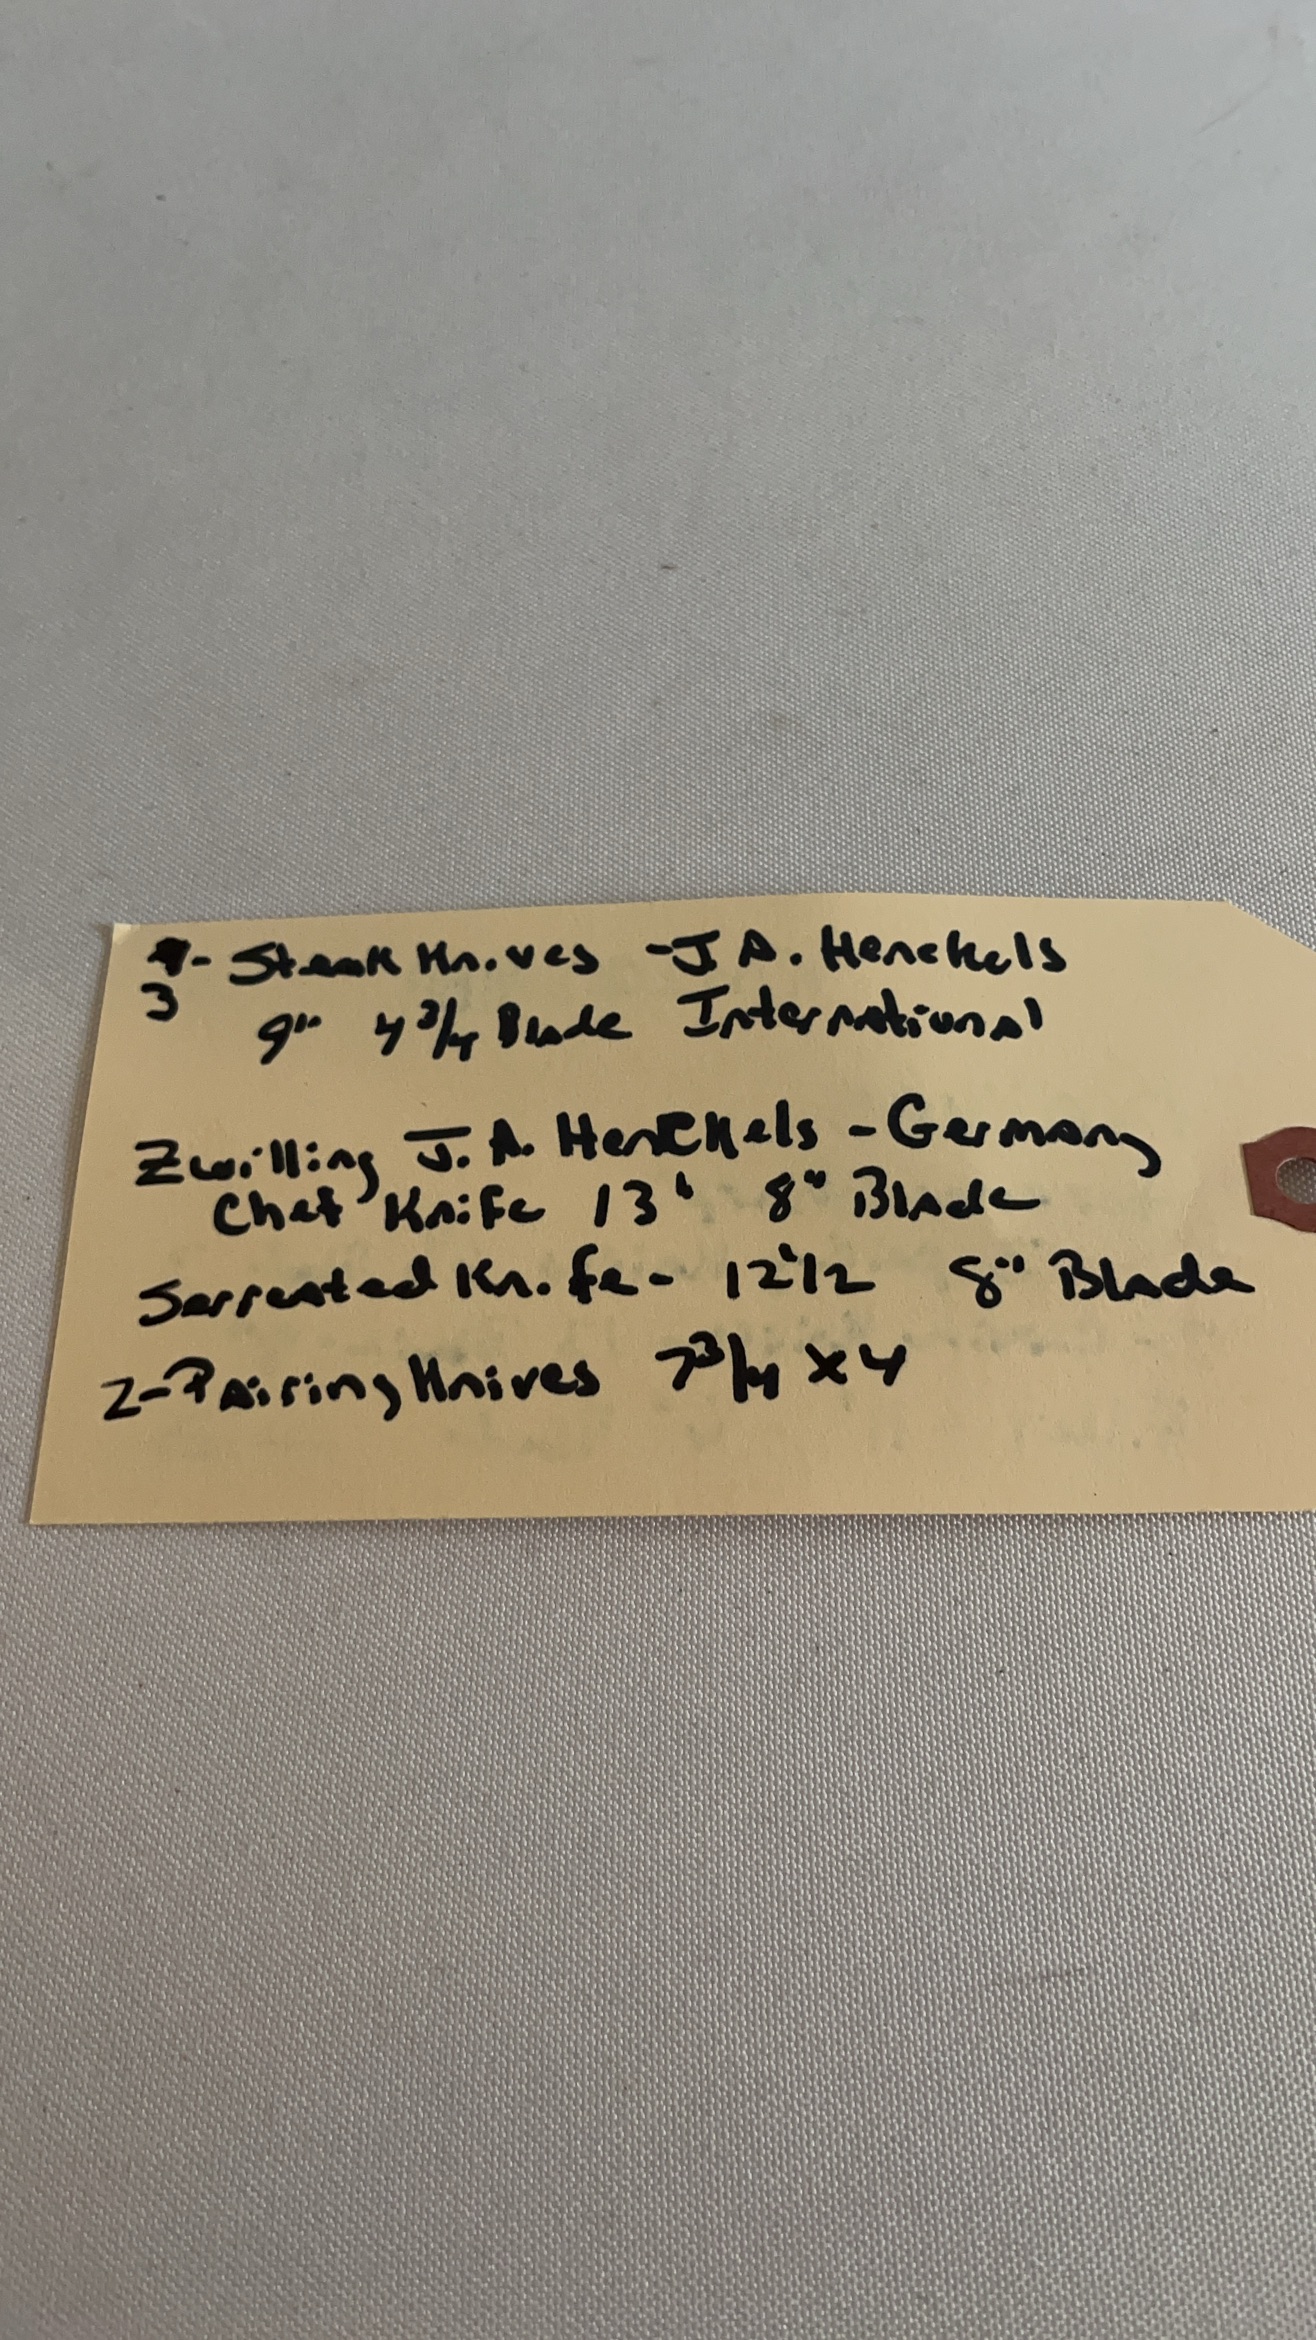 - Steak Knives - J.A. Henckels
3
9" 4 3/4 Blade International
Zwilling J.A. Henckels - Germany
Chef Knife 13" 8" Blade
Serrated Knife - 12 1/2 8" Blade
2 - Pairing Knives 7 3/4 x 4